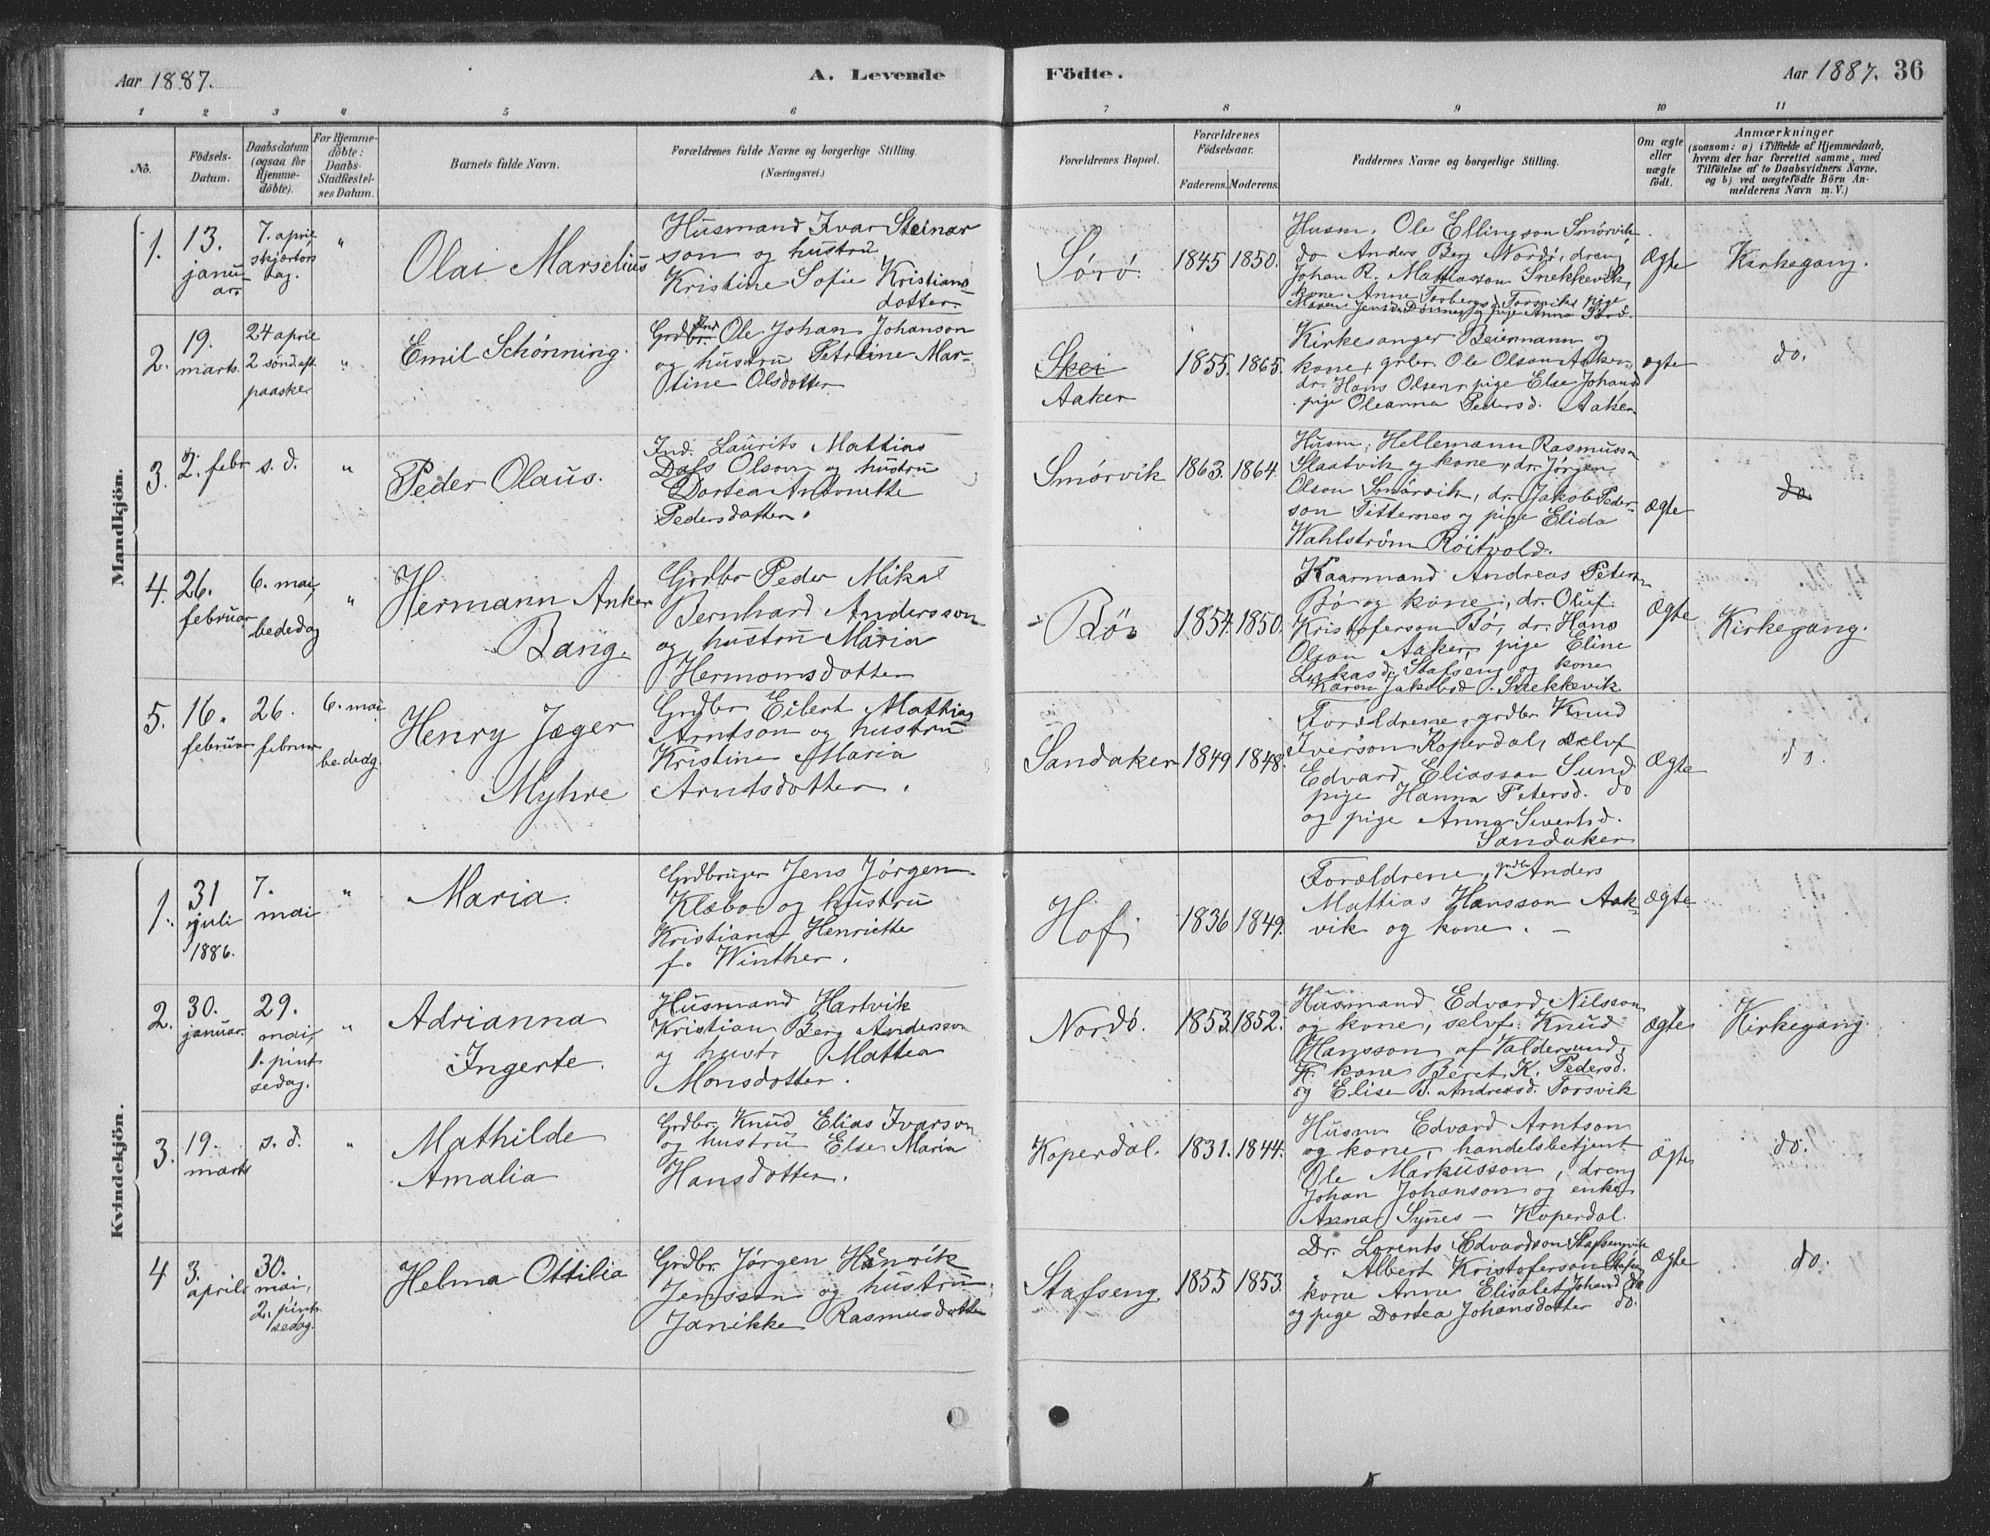 Aar 1887.
A. Levende
Födte.
Aar 1887. 36
1 2 3 4 5 6 7 8 9 10 11
No.
Födsels-
Datum.
Daabsdatum
(ogsaa for
Hjemme-
döbte).
For Hjemme-
döbte:
Daabs-
Stadfæstel-
ses Datum.
Barnets fulde Navn.
Forældrenes fulde Navne og borgerlige Stilling.
(Næringsvei.)
Forældrenes Bopæl.
Forældrenes
Födselsaar.
Faderens. Moderens.
Faddernes Navne og borgerlige Stilling.
Om ægte
eller
uægte
födt.
Anmærkninger
(saasom: a) i Tilfælde af Hjemmedaab,
hvem der har forrettet samme, med
Tilföielse af to Daabsvidners Navne,
og b) ved uægtefödte Börn An-
melderens Navn m. V.)
Mandkjön.
1.
13.
janu
ar.
7. april
skjærtors
dag.
"
Olai Marselius
Husmand Ivar Steinar
son og hustru
Kristine Sofie Kristians
dotter
Sørø.
1845 1850.
Husm. Ole Ellingson Smørvik
do Anders Berg Nordø, dreng
Johan R. Mattiasson Snekkevik,
kone Anne Torbergsd. Torsvik, pige
Maren Jensd. Dønnes og pige Anna Sørø.
Ægte
Kirkegang.
2.
19.
marts.
24 april
2 sönd. eft.
paaske
"
Emil Schönning.
Grdbr. Ind Ole Johan Johanson
og hustru Petrine Mar-
tine Olsdotter
Skei
Aaker
1855. 1865.
Kirkesanger Beiermann og
kone, grbr. Ole Olson Aaker,
dr. Hans Olsen, pige Else Johansd
pige Oleanna Pedersd. Aaker
ægte
do.
3.
2. febr
s. d.
"
Peder Olaus.
Ind. Laurits Mattias
Dass Olson og hustru
Dortea Antonette
Pedersdatter.
Smörvik
1863. 1864.
Husm. Hellemann Rasmusson
Slaatvik og kone, dr. Jørgen
Olson Smörvik, dr. Jakob Peder-
son Titternes og pige Elida
Wahlström Röitvold.
Ægte
do.
4.
26.
februar
6. mai,
bededag
"
Hermann Anker
Bang.
Grdbr Peder Mikal
Bernhard Andersson
og hustru Maria
Hermomsdotter
Bö.
1854. 1850.
Kaarmand Andreas Peterson
Bö og kone, dr. Oluf
Kristoferson Bö, dr. Hans
Olson Aaker, pige Eline
Lukasd. Stafseng og kone
Karen Jakobsd. Snekkevik
Ægte
Kirkegang.
5.
16.
februar
26.
februar
6. mai
bededg.
Henry Jæger
Myhre
Grdbr Eilert Mathias
Arntson og hustru
Kristine Maria
Arntsdotter.
Sandaker
1849 1848.
Forældrene, grdbr Knud
Iverson Koperdal, selvf
Edvard Eliasson Sund
pige Hanna Petersd. do
og pige Anna Sivertsd.
Sandaker
Ægte
do.
Kvindekjön.
1.
31
juli
1886.
7.
mai
"
Maria.
Grdbruger Jens Jørgen
Klæbo og hustru
Kristiana Henriette
f. Winther.
Hof
1836 1849.
Forældrene, grdbr Anders
Mattias Hansson Aak-
vik og kone. —
Ægte
2.
30.
januar.
29.
mai,
1. pint
sedag.
"
Adrianna
Ingerte.
Husmand Hartvik
Kristian Berg Andersson
og hustr Mattea
Monsdotter.
Nordö.
1853. 1852.
Husmand Edvard Nilsson
og kone, selvf. Knud
Hansson af Valdersund,
K. kone Beret K. Pedersd.
og Elise B. Andreasd. Torsvik
ægte
Kirkegang.
3.
19.
marts
s. d.
"
Mathilde
Amalia
Grdbr. Knud Elias Ivarson
og hustru Else Maria
Hansdotter.
Koperdal.
1831. 1844.
Husm Edvard Arntson
og kone, handelsbetjent
Ole Markusson, dreng
Johan Johanson og enke
Anna Synes — Koperdal.
ægte
do.
4
3.
april
30.
mai,
2. pint
sedag.
Helma Ottilia
Grdbr. Jørgen Henrik
Jensson og hustru
Janikke Rasmusdotter
Stafseng
1855 1853.
Dr. Lorents Edvardson Stafsengvik
" Albert Kristoferson Stafseng
kone Anne Elisabet Johansd do
og pige Dortea Johansdotter do.
Ægte
do.